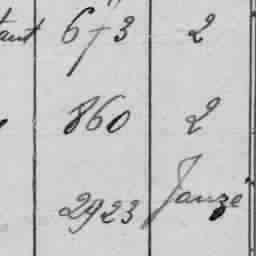 tant 673 2
860 2
2923 Janzé